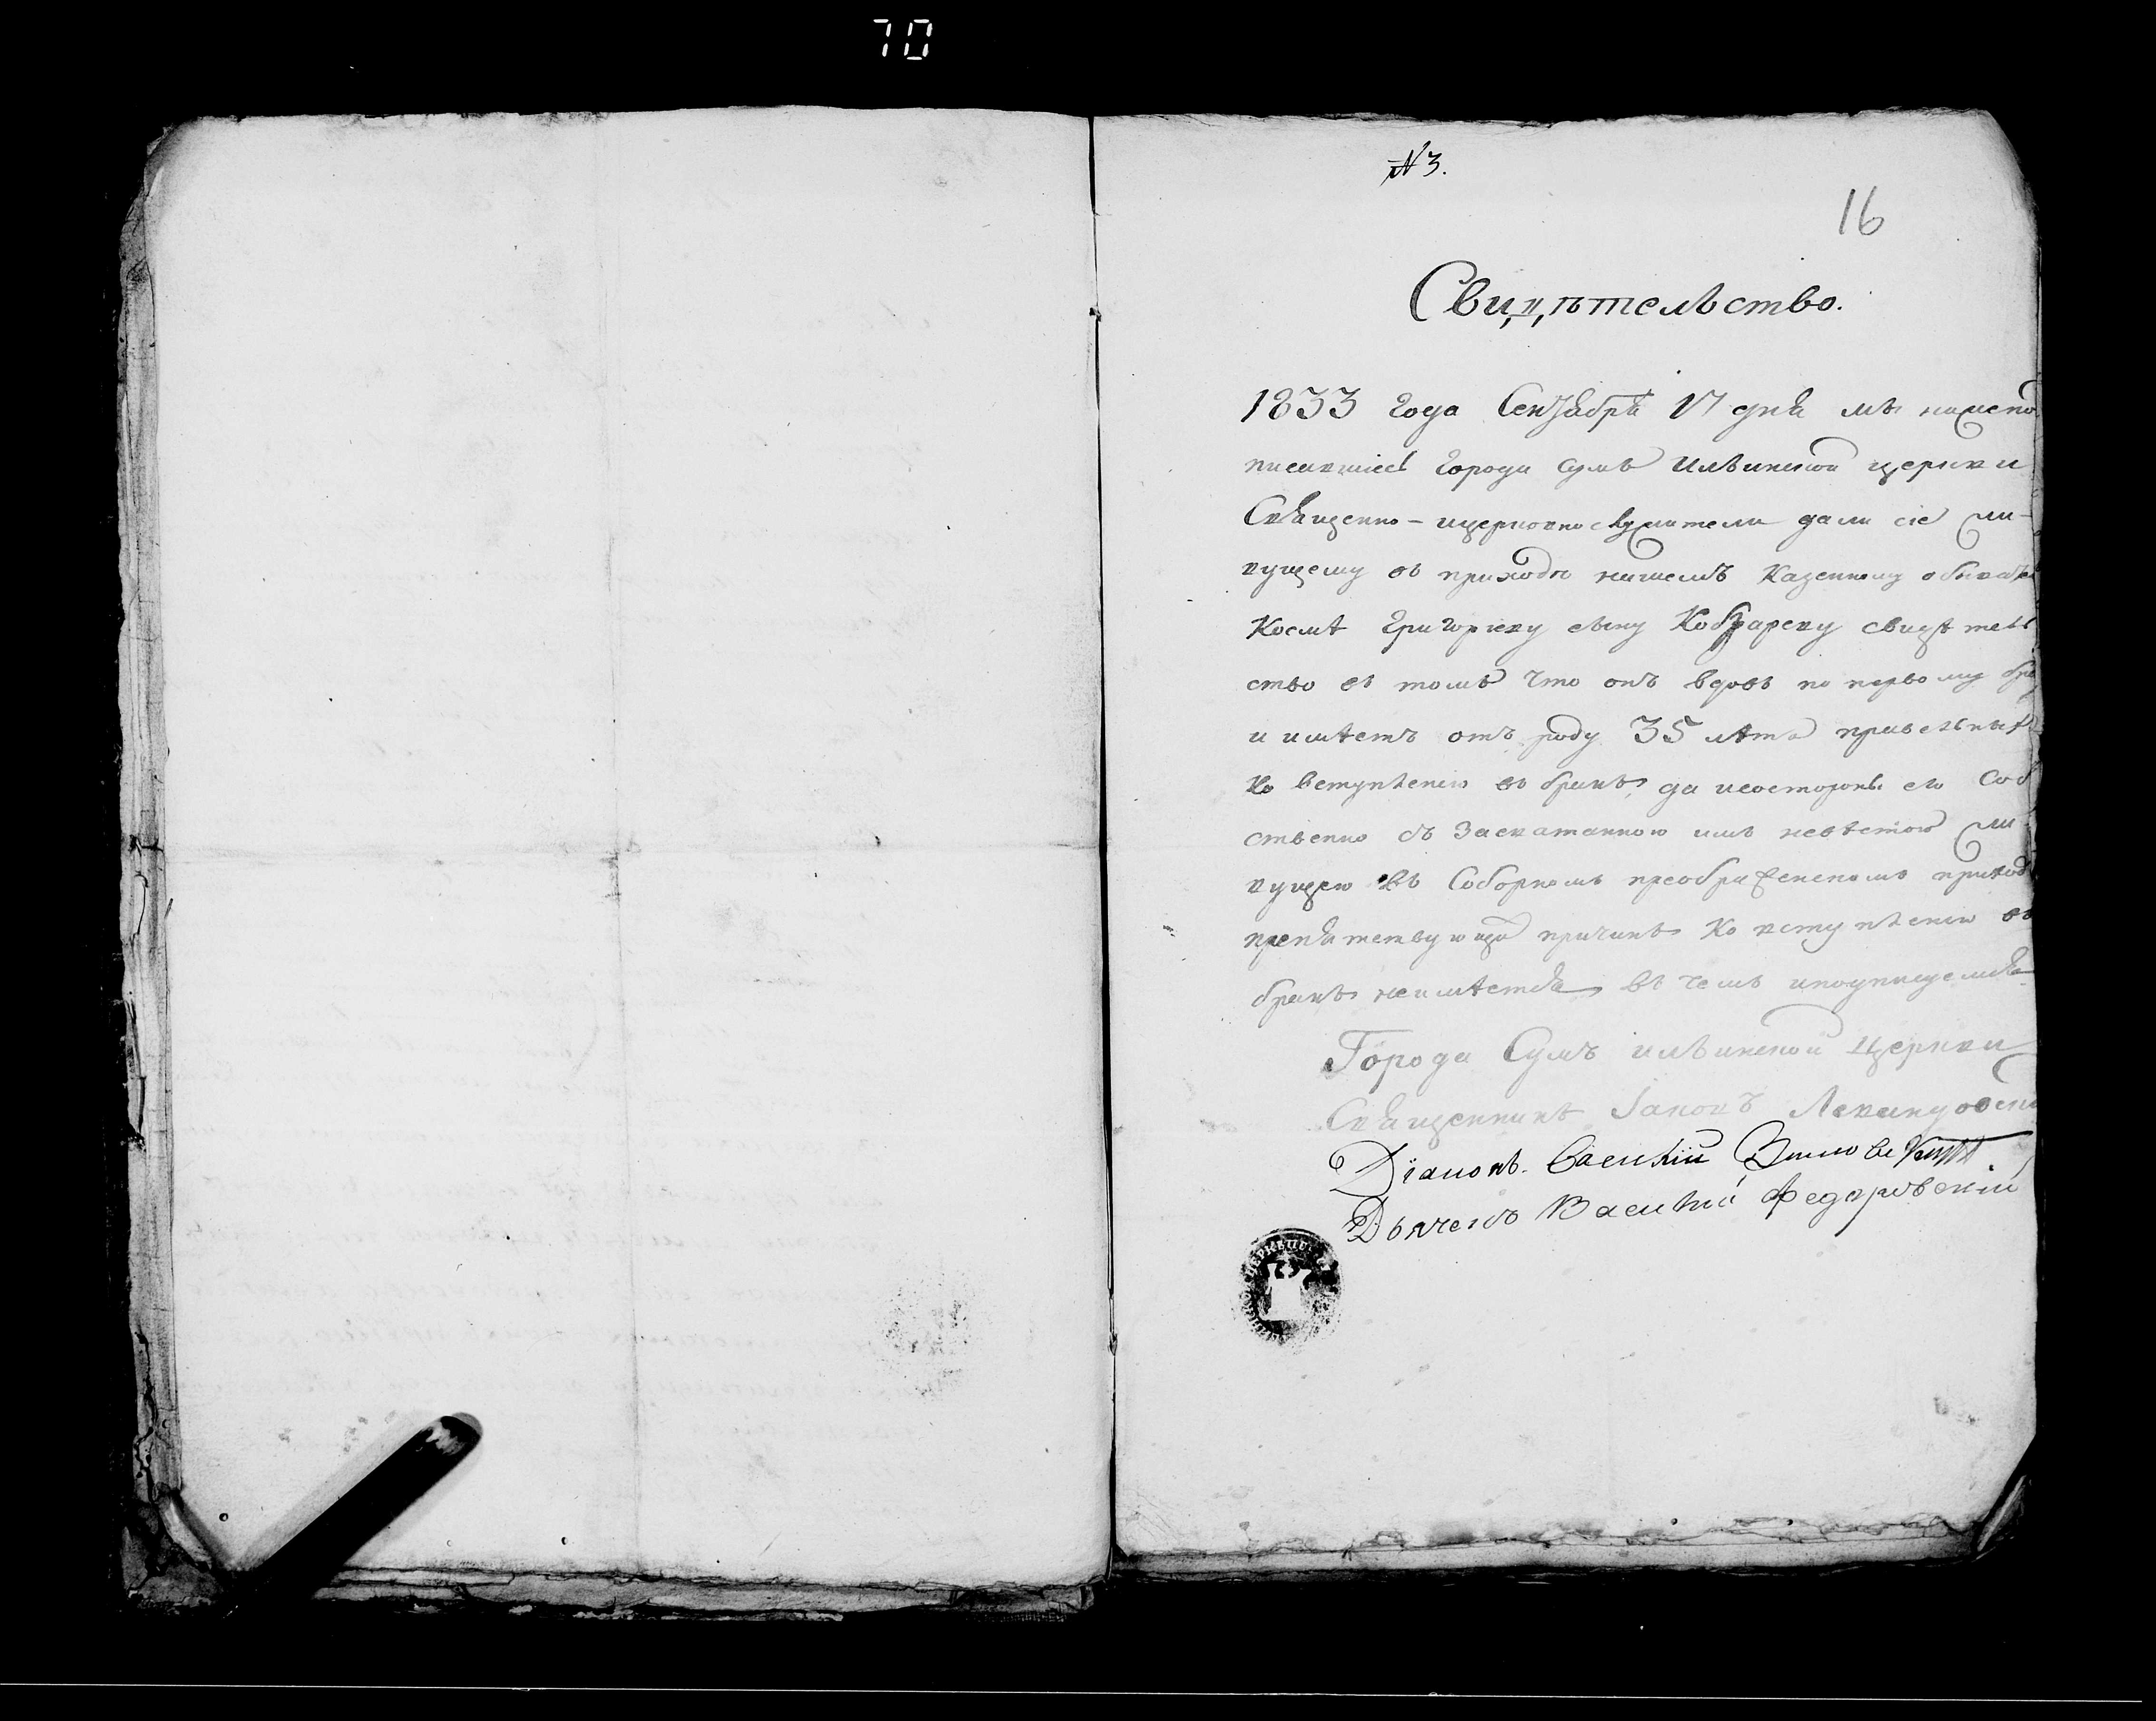 70
№ 3.
16
Свидѣтельство.
1833 года Сентября 17 дня мы нижепод
писавшіесь города Сумъ Ильинской церкви
Священно-ицерковнослужители дали сіе жи-
вущему въ приходѣ нашемъ казенному обывател
Космѣ Григоріеву сыну Кобзареву свидѣтель
ство въ томъ что онъ вдовъ по первому бра
и имѣетъ отъ роду 35 лѣтъ правельныхъ
ко вступленію въ бракъ, да исостороны его соб
ственно съ засватанною имъ невѣстою жи
вущею въ Соборномъ преображенскомъ приход
препятствующей причины ко вступленію въ
бракъ неимѣется, въ чемъ иподписуемся
Города Сумъ ильинской церкви
Священникъ Іаковъ
Діаконъ Василій
Дьячекъ Василій Федоровскій